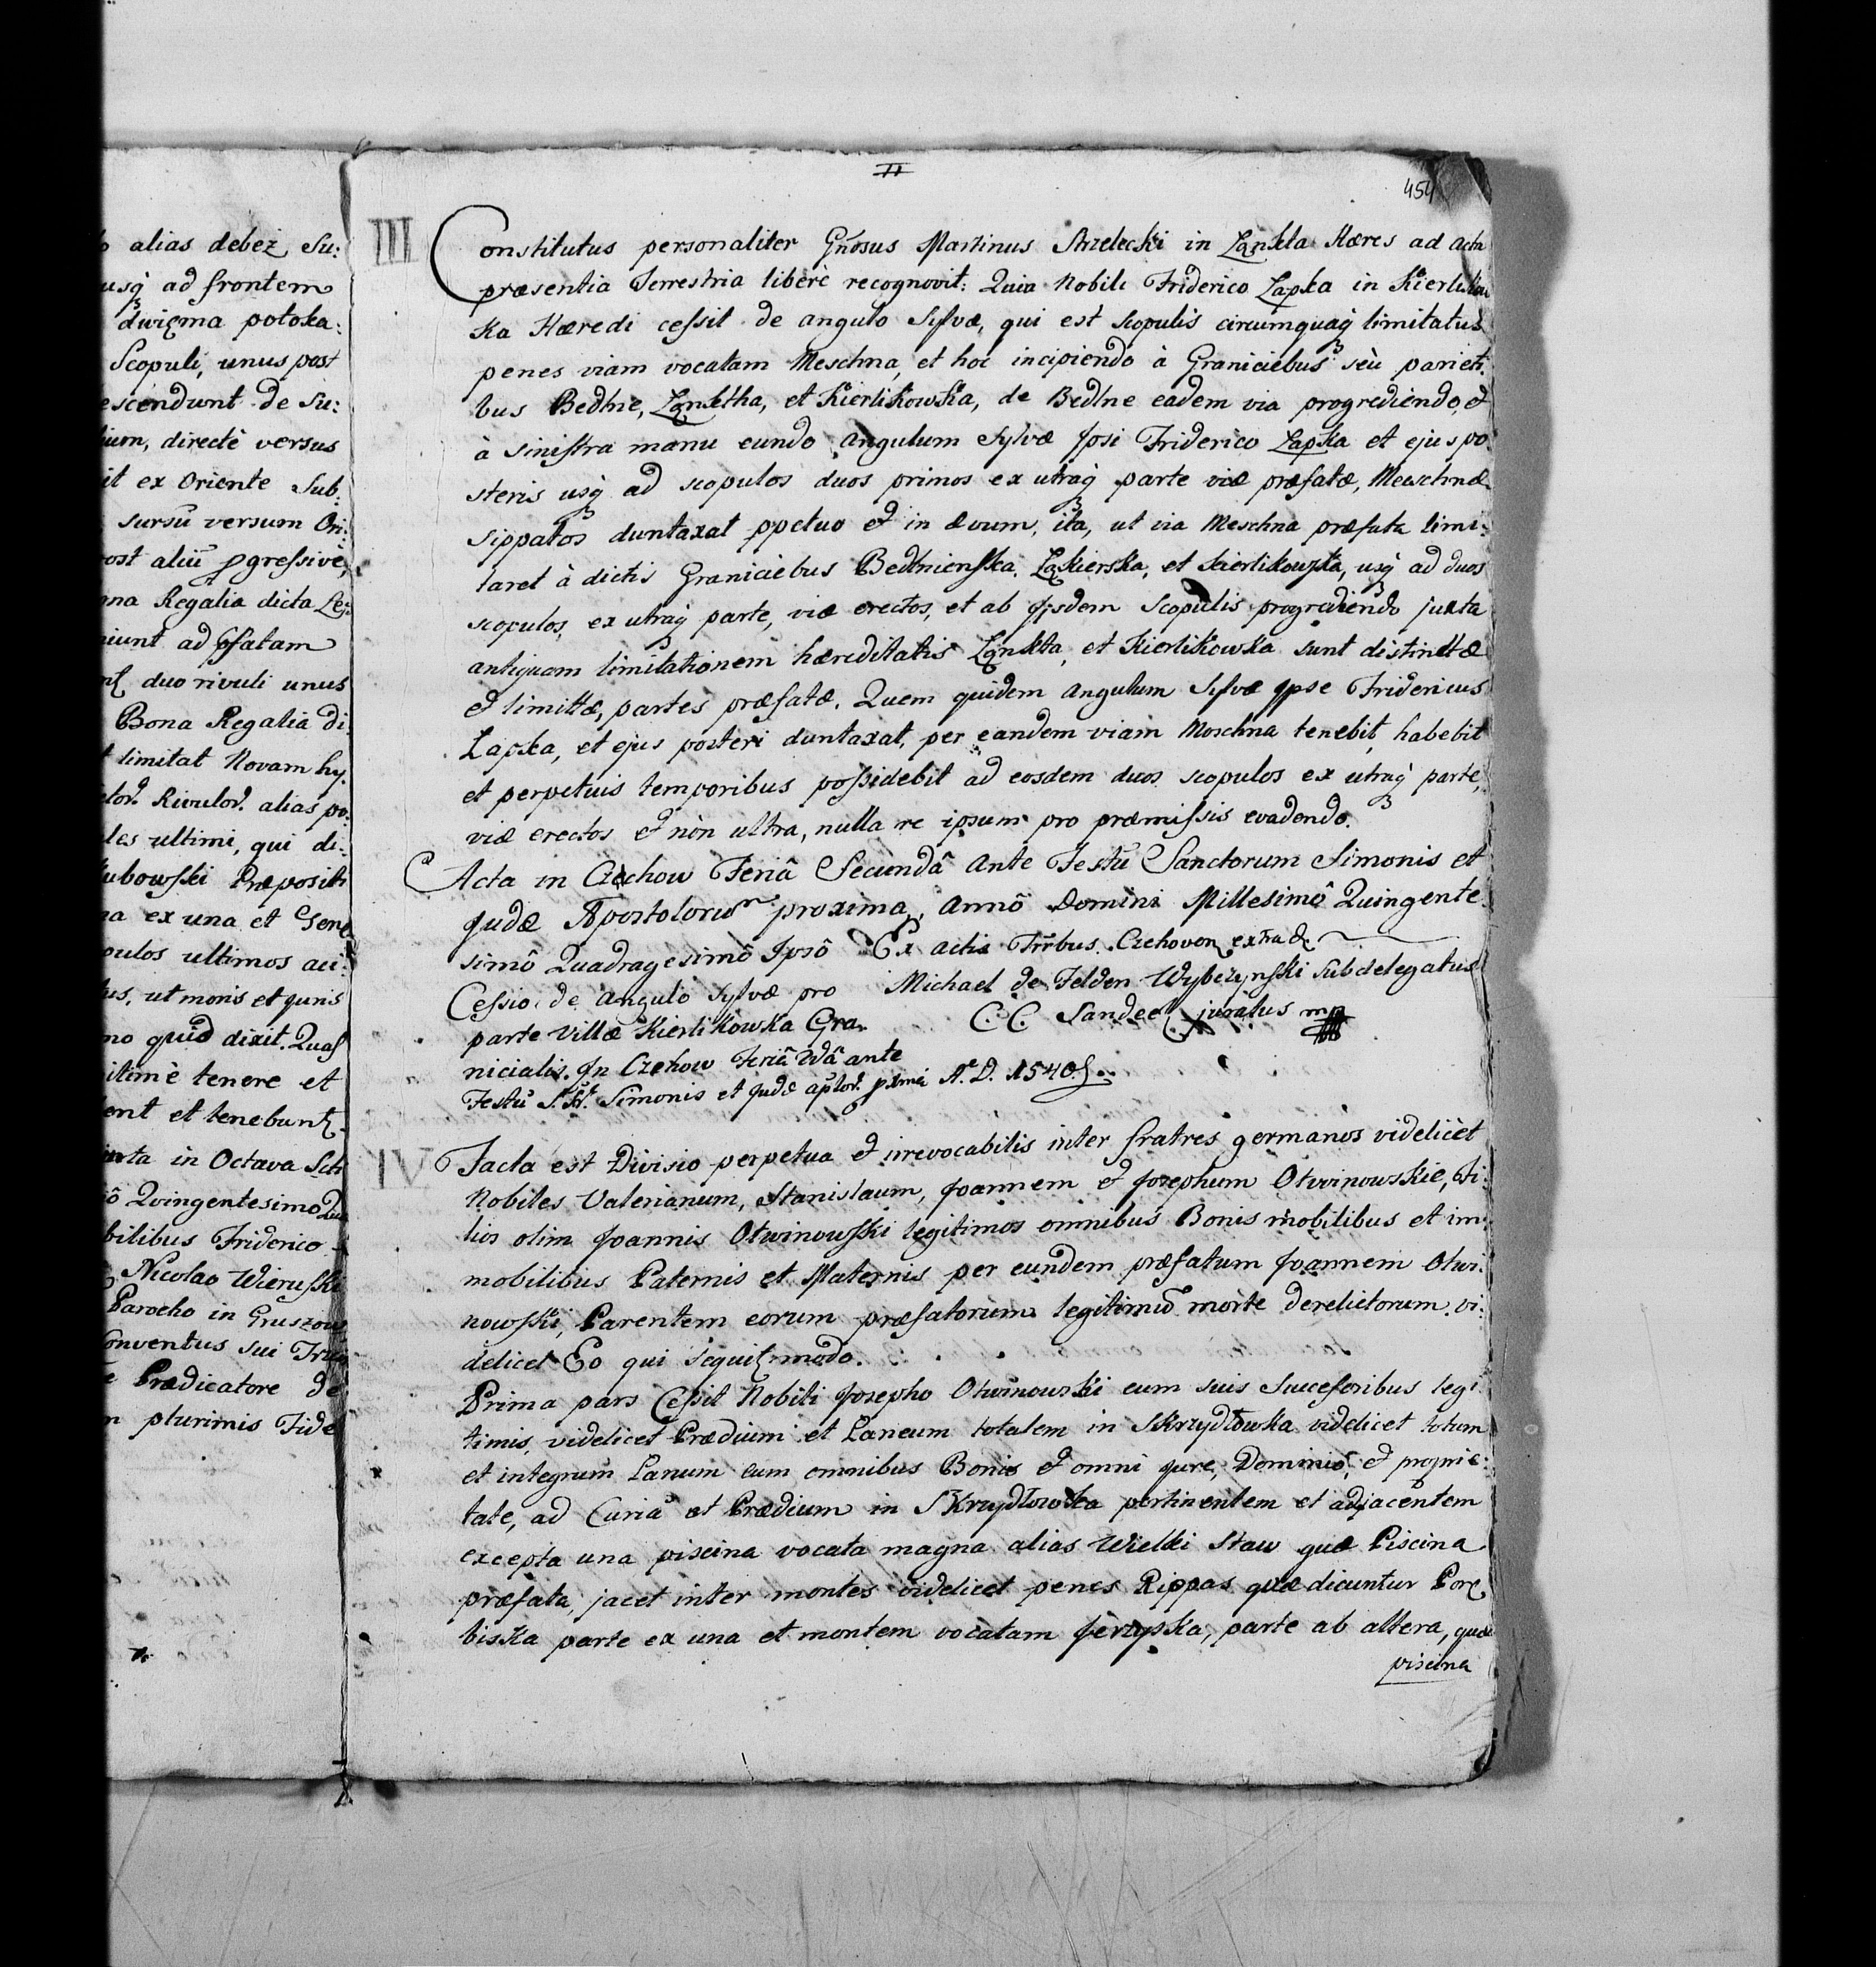 alias debeż Su:
usq ad frontem
dwigma potoka:
Scopuli, unus post
escendunt de Su:
directè versus
it ex Oriente Sub:
sursū versum Ori:
ost aliū pgressivè,
Regalia dicta
iunt ad pfatam
duo rivuli unus
Bona Regalia di
limitat Novam hy.
Rivulor. alias po:
les ultimi, qui di:
ubowski Præpositi
ex una et Gene
opulos ultimos aci:
us, ut moris et Juris
quid dixit. Quas
itimè tenere et
ent et tenebunt
in Octava
ô Quingentesimo Qua
bilibus Friderico
Nicolao Wieruski
Parocho in Gruszow
Conventus sui
Prædicatore de
plurimis Fide
II
454
III Constitutus personaliter Gnosus Martinus Strzelecki in Ląnkta Hæres ad acta
præsentia Terrestria liberè recognovit: Quia Nobili Friderico Lapka in Kierliko
ka Hæredi cessit de angulo Sylvæ, qui est scopulis circumquaq limitatus
penes viam vocatam Meschna, et hoc incipiendo à Graniciebus seù parieti:
bus Bedlne, Ląnktha, et Kierlikowka, de Bedlne eadem via progrediendo, et
à sinistra manu eundo angulum Sylvæ Ipsi Friderico Lapka et ejus po:
steris usq ad scopulos duos primos ex utraq parte viæ præfatæ, Meschnæ
sippatos duntaxat ppetuo et in ævum, ita, ut via Meschna præfata limi:
taret à dictis Graniciebus Bedlnienska, Ląkierska, et Kierlikowska, usq ad duos
scopulos, ex utraq parte, viæ erectos, et ab Ipsdem Scopulis progrediendo juxta
antiquam limitationem hæreditatis Ląnkta, et Kierlikowka sunt distinctæ
et limittæ, partes præfatæ. Quem quidem angulum Sylvæ Ipse Fridericus
Lapka, et ejus posteri duntaxat, per eandem viam Moschna tenebit, habebit
et perpetuis temporibus possidebit ad eosdem duos scopulos ex utraq parte,
viæ erectos et nòn ultra, nulla re ipsum pro præmissis evadendo.
Acta in Czchow Feriâ Secundâ ante Festū Sanctorum Simonis et
Judæ Apostolorum proxima, Annô Domini Millesimô Quingente
simô Quadragesimô Ipsô Ex actis Trrbus. Czchovon extrad
Cessio de angulo sylvæ pro Michael de Felden Wybczynski Subdelegatus
parte Villæ Kierlikowka Gra. C.C. Sandec juratus mp
nicialis. In Czchow Feriâ IIdâ ante
Festū S. St. Simonis et Judæ aptor. pxmâ A. D. 1540.
IV Facta est Divisio perpetua et irrevocabilis inter fratres germanos videlicèt
Nobiles Valerianum, Stanislaum, Joannem et Josephum Otwinowskie, Fi:
lios olim Joannis Otwinowski legitimos omnibus Bonis mobilibus et im:
mobilibus Paternis et Maternis per eundem præfatum Joannem Otwi:
nowski, Parentem eorum præfatorum legitimū morte derelictorum, vi:
delicet Eo qui sequit modo.
Prima pars Cessit Nobili Josepho Otwinowski cum suis Successoribus legi
timis, videlicet Prædium et Laneum totalem in Skrzydłowka videlicet totum
et integrum Lanum cum omnibus Bonis et omni jure, Dominio, et proprie:
tate, ad Curiā et Prædium in Skrzydłowka pertinentem et adjacentem
excepta una piscina vocata magna alias Wielki Staw quæ Piscina
præfata, jacet inter montes videlicet penes Rippas quæ dicuntur Porę
biska parte ex una et montem vocatam Jerzyska, parte ab altera, quæ
piscina